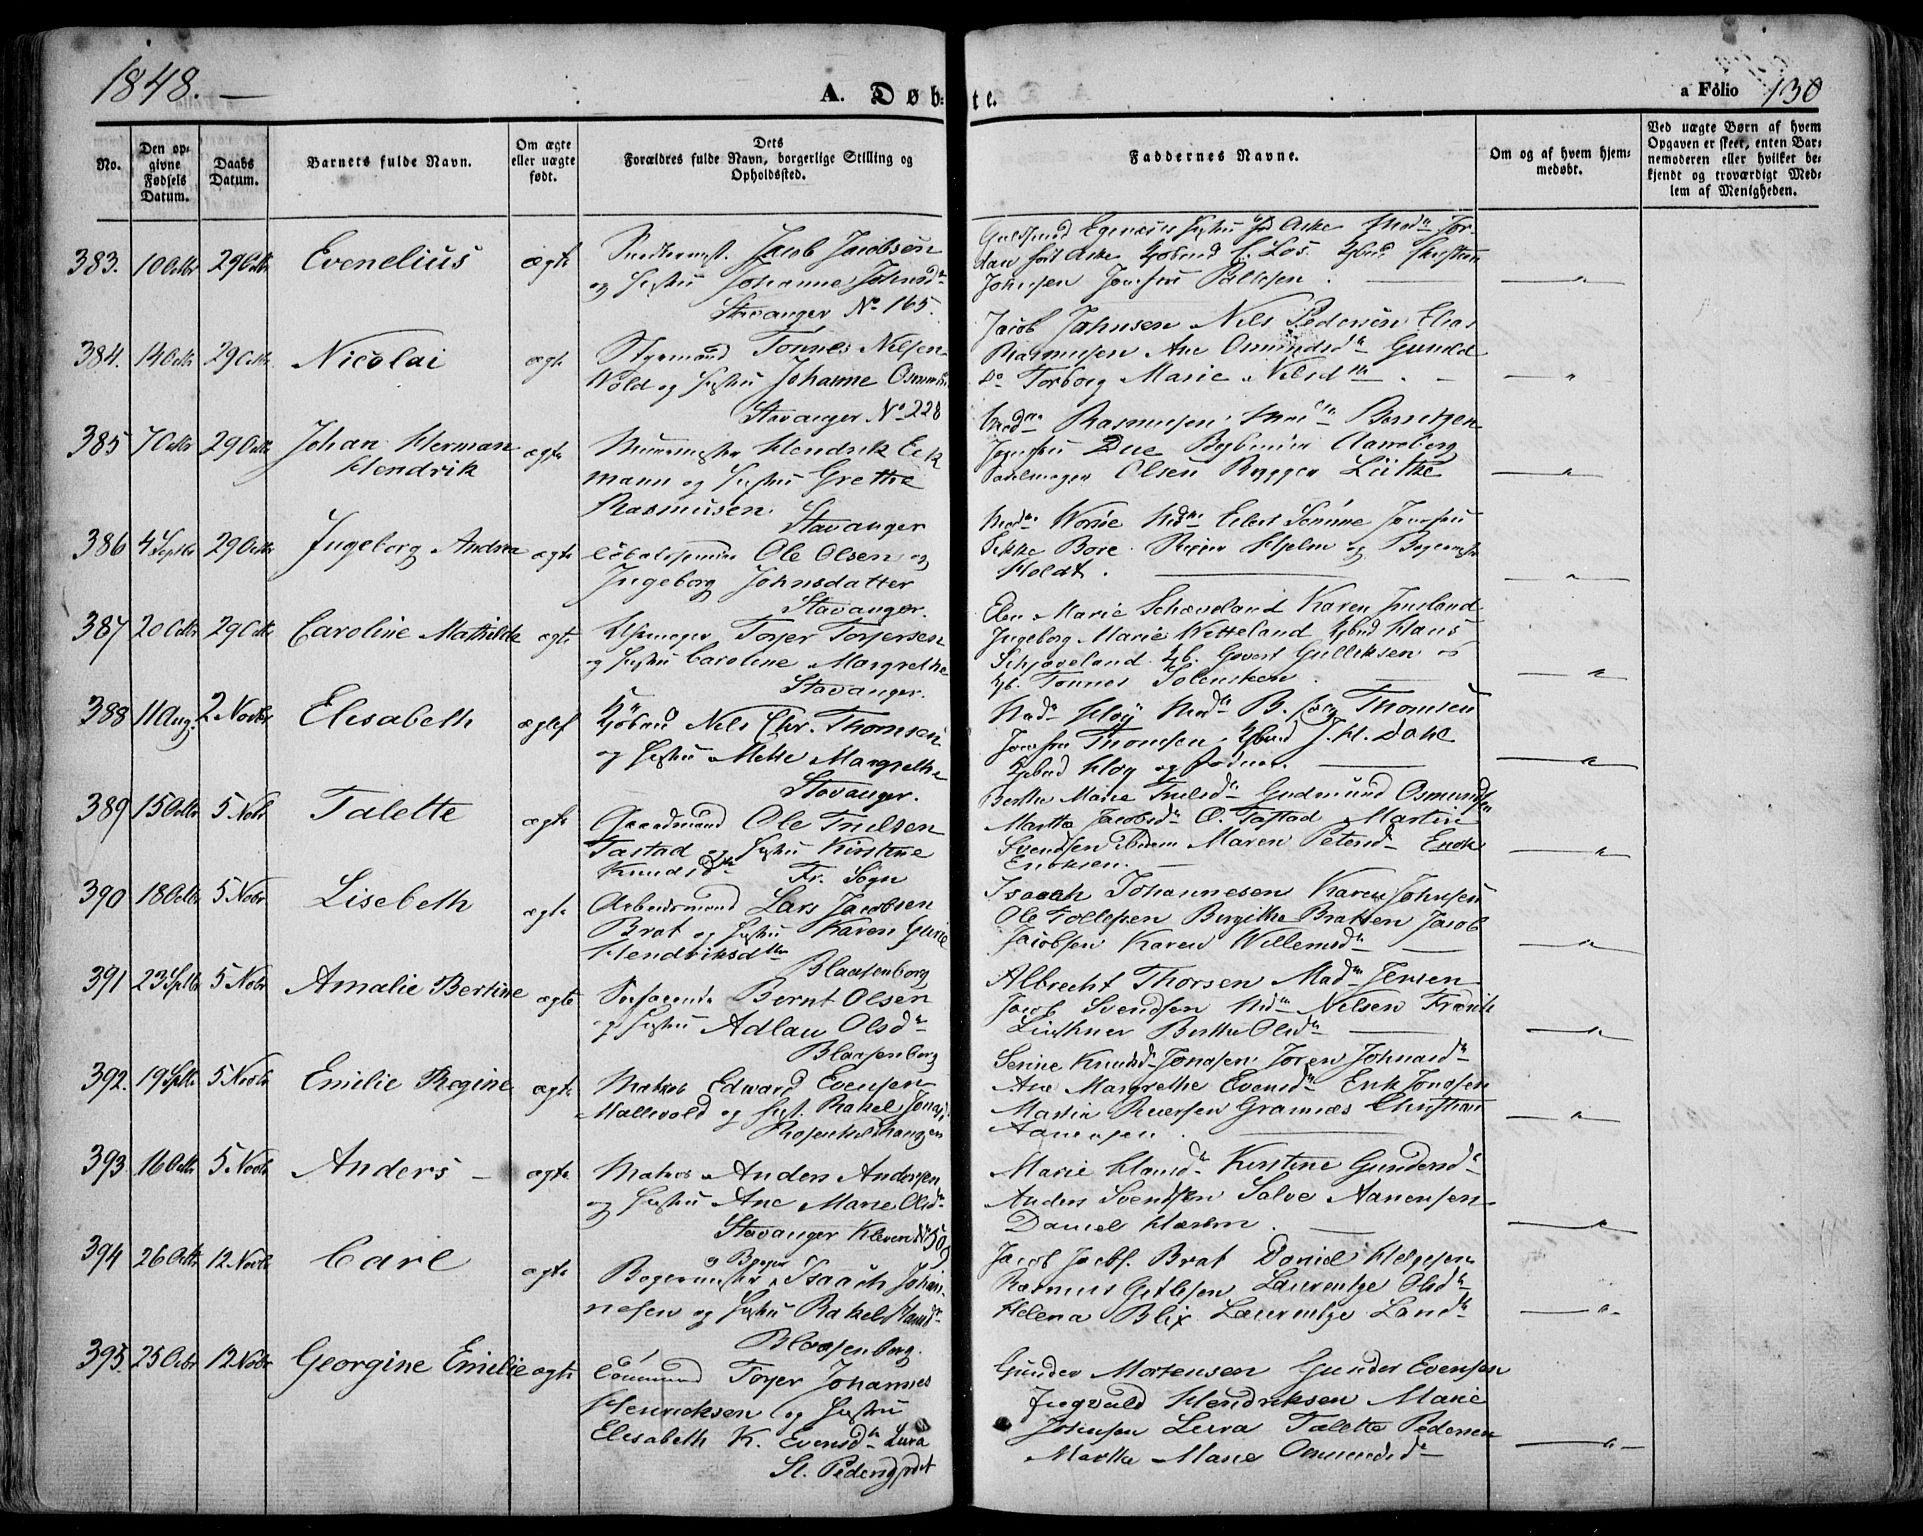 1848. —
A. Døb-
te.
a Folio 130
No.
Den op-
givne
Fødsels
Datum.
Daabs
Datum.
Barnets fulde Navn.
Om ægte
eller uægte
født.
Dets
Forældres fulde Navn, borgerlige Stilling og
Opholdssted.
Faddernes Navne.
Om og af hvem hjem-
medøbt.
Ved uægte Børn af hvem
Opgaven er skeet, enten Bar-
nemoderen eller hvilket be-
kjendt og troværdigt Med-
lem af Menigheden.
383. 10 Octbr 29 Octbr Evenelius ægte
Jacob Jacobsen
og Hustru Johanne Johnsd.
Stavanger No 165.
Johnsen Jomfru Paulsen. — "
384. 14 Octbr 29 Octbr Nicolai ægte
Styrmand Tönnes Nilsen
Wold og Hustru Johanne Osmun
Stavanger No 228
Jacob Johnsen Nils Pedersen Elias
Rasmusen Ane Osmundsdr Gunild
do Torborg Marie Nilsdtr. — "
385 7 Octbr 29 Octbr Johan Herman
Hendrik ægte
Muurmester Hendrik Eck
mann og Hustru Grethe
Rasmusen. Stavanger
Madm Rasmusen Madm Berntzen
Jomfru Due Aareberg
Olsen Rygger Lütke — "
386 4 Septbr 29 Octbr Ingeborg Andrea ægte
Ole Olsen og
Ingeborg Johnsdatter
Stavanger.
Madm Worse Madm Eilert Sömme Jomfru
Sikke Bore. Hjelm og
Holdt. — "
387 20 Octbr 29 Octbr Caroline Mathilde ægte
Torjer Torjersen
og Hustru Caroline Margrethe
Stavanger.
Elen Marie Schæveland Karen
Ingeborg Marie Wetteland Kjbmd Hans
Schjæveland. Kjb. Govert Gulliksen og
Kjb. Tönnes Solensteen. — "
388 11 Aug. 2 Novbr Elisabeth ægte
Kjöbmd Nils Chr. Thomsen
og Hustru Mette Margrethe
Stavanger.
Madm Klöy Madm B. Thomsen
Jomfru Thomsen. Kjbmd J. H. Dahl
Kjbmd Kloy og Faderen. — "
389 15 Octbr 5 Nobr Talette ægte
Gaardmand Ole Trulsen
Tastad og Hustru Kirstine
Knudsdtr Fr. Sogn
Berthe Marie Trulsdr Gudmund Osmundsen
Martha Jacobsdr O. Tastad Martin
Svendsen ibidem Maren Petersdr Enok
Enoksen. — "
390 18 Octbr 5 Nobr Lisebeth ægte
Arbeidsmand Lars Jacobsen
Brat og Hustru Karen Gurie
Hendriksdtr
Blaasenborg
Isaach Johannesen Karen Johnsen
Ole Tollefsen Birgithe Bratten Jacob
Jacobsen Karen Willemsdr — "
391 23 Sptbr 5 Nobr Amalie Bertine ægte
Søefarende Bernt Olsen
og Hustru Adlau Olsdr
Blaasenborg
Albrecht Thorsen Madm Jensen
Jacob Svendsen Madm Nilsen Fredrik
Berthe Olsdr — "
392. 19 Sptbr 5 Novbr Emilie Regine ægte
Matros Edward Evensen
Hallevold og Hust. Rakel Jonas
Rosenkildehaugen
Serine Knudsdr Jonasen Jören Johnasdr
Ane Margrethe Evensdr Erik Jonasen
Martin Reiersen Gramnæs Christian
Aanensen. — "
393. 16 Octbr 5 Novbr Anders — ægte
Matros Anders Andersen
og Hustru Ane Marie Olsdr
Stavanger Kleven No 505
Marie Hansdr Kirstine Gundersdr
Anders Svendsen Salve Aanensen
Daniel — "
394 26 Octbr 12 Novbr Carl ægte
og Bager
Bogermester Isaach Johan-
nesen og Hustru Rakel Hansdr
Blaasenborg.
Jacob Jacobs. Brat Daniel Helgesen
Rasmus Gitlesen Laurentze Olsdr
Helena Blix Laurentze Landr — "
395. 25 Octbr 12 Nobr Georgine Emelie ægte
Torjer Johannes
Henricksen og Hustru
Elisabeth K. Evensdr Lura
St. Pedersgjerdet
Gunder Mortensen Gunder Evensen
Ingvald Hendriksen Marie
Johnsen Lura Talette Pedersen
Martha Marie Osmundsdr — "